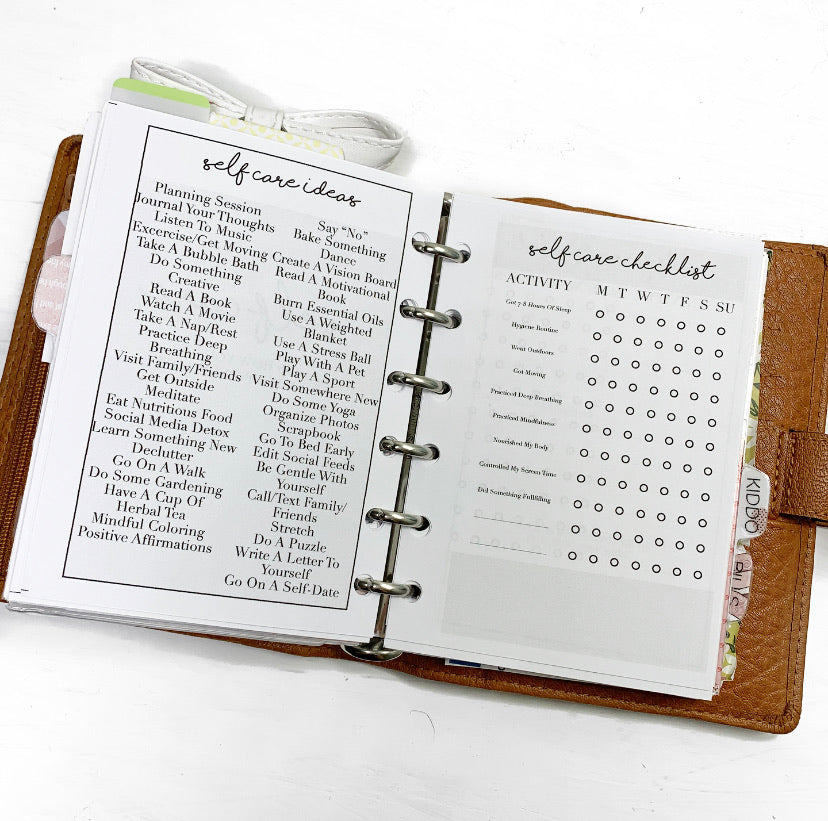 self care ideas
Planning Session
Journal Your Thoughts
Listen To Music
Excercise/Get Moving
Take A Bubble Bath
Do Something
Creative
Read A Book
Watch A Movie
Take A Nap/Rest
Practice Deep
Breathing
Visit Family/Friends
Get Outside
Meditate
Eat Nutritious Food
Social Media Detox
Learn Something New
Declutter
Go On A Walk
Do Some Gardening
Have A Cup Of
Herbal Tea
Mindful Coloring
Positive Affirmations
Say "No"
Bake Something
Dance
Create A Vision Board
Read A Motivational
Book
Burn Essential Oils
Use A Weighted
Blanket
Use A Stress Ball
Play With A Pet
Play A Sport
Visit Somewhere New
Do Some Yoga
Organize Photos
Scrapbook
Go To Bed Early
Edit Social Feeds
Be Gentle With
Yourself
Call/Text Family/
Friends
Stretch
Do A Puzzle
Write A Letter To
Yourself
Go On A Self-Date
self care checklist
ACTIVITY M T W T F S SU
Got 7-8 Hours Of Sleep
Hygiene Routine
Went Outdoors
Got Moving
Practiced Deep Breathing
Practiced Mindfulness
Nourished My Body
Controlled My Screen Time
Did Something Fulfilling
KIDDO